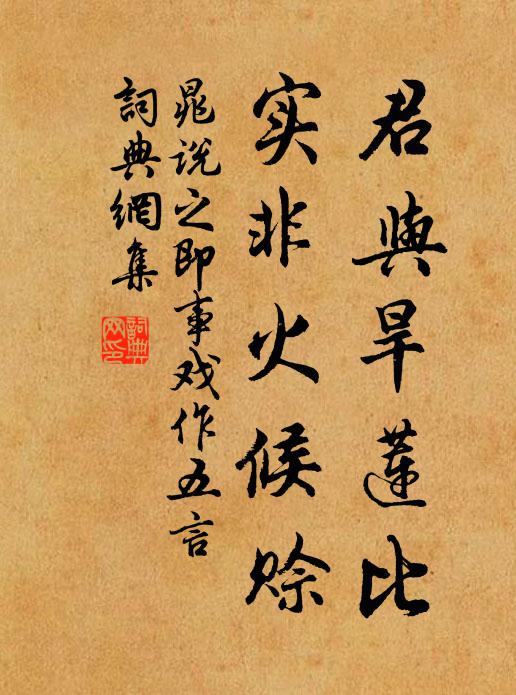 君與旱蓮比
实非火候赊
晁说之即事戏作五言
詞典網集
詞典網印